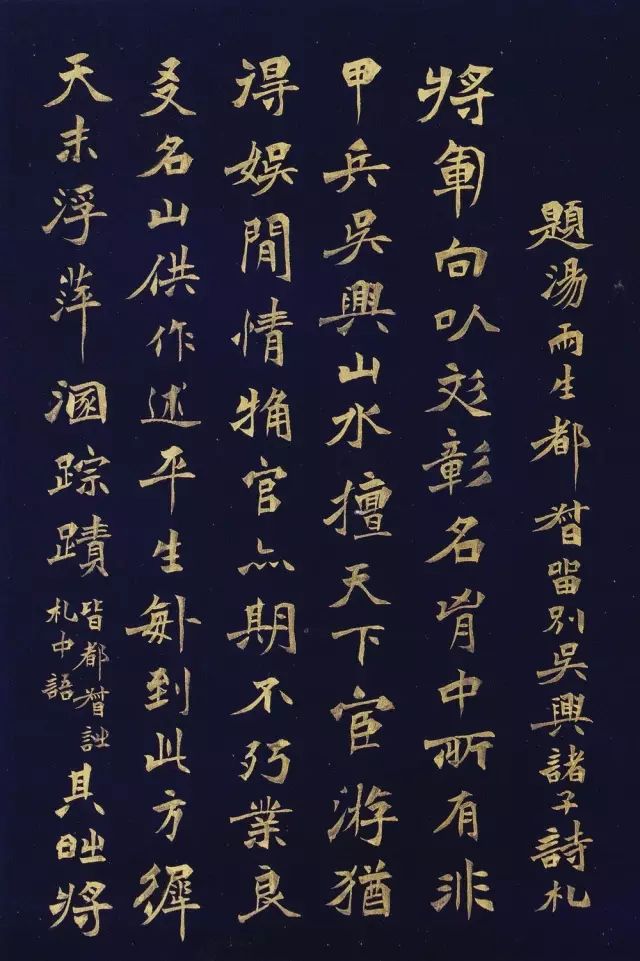 題湯雨生都督留別吳興諸子詩札
將軍向㕥彣彰名胷中所有非
甲兵吳興山水擅天下宦游猶
得娛閒情觕官亦期不㱙業良
友名山供作述平生到此方徲
天末浮萍溷踪蹟
皆都督詩
札中語
其時將